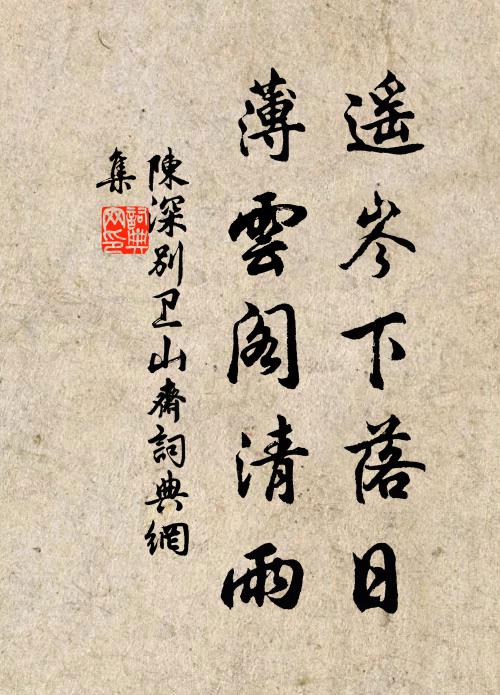 遥岑下落日
薄雲閣清雨
陳深别卫山齋詞典網
集
詞典
网印